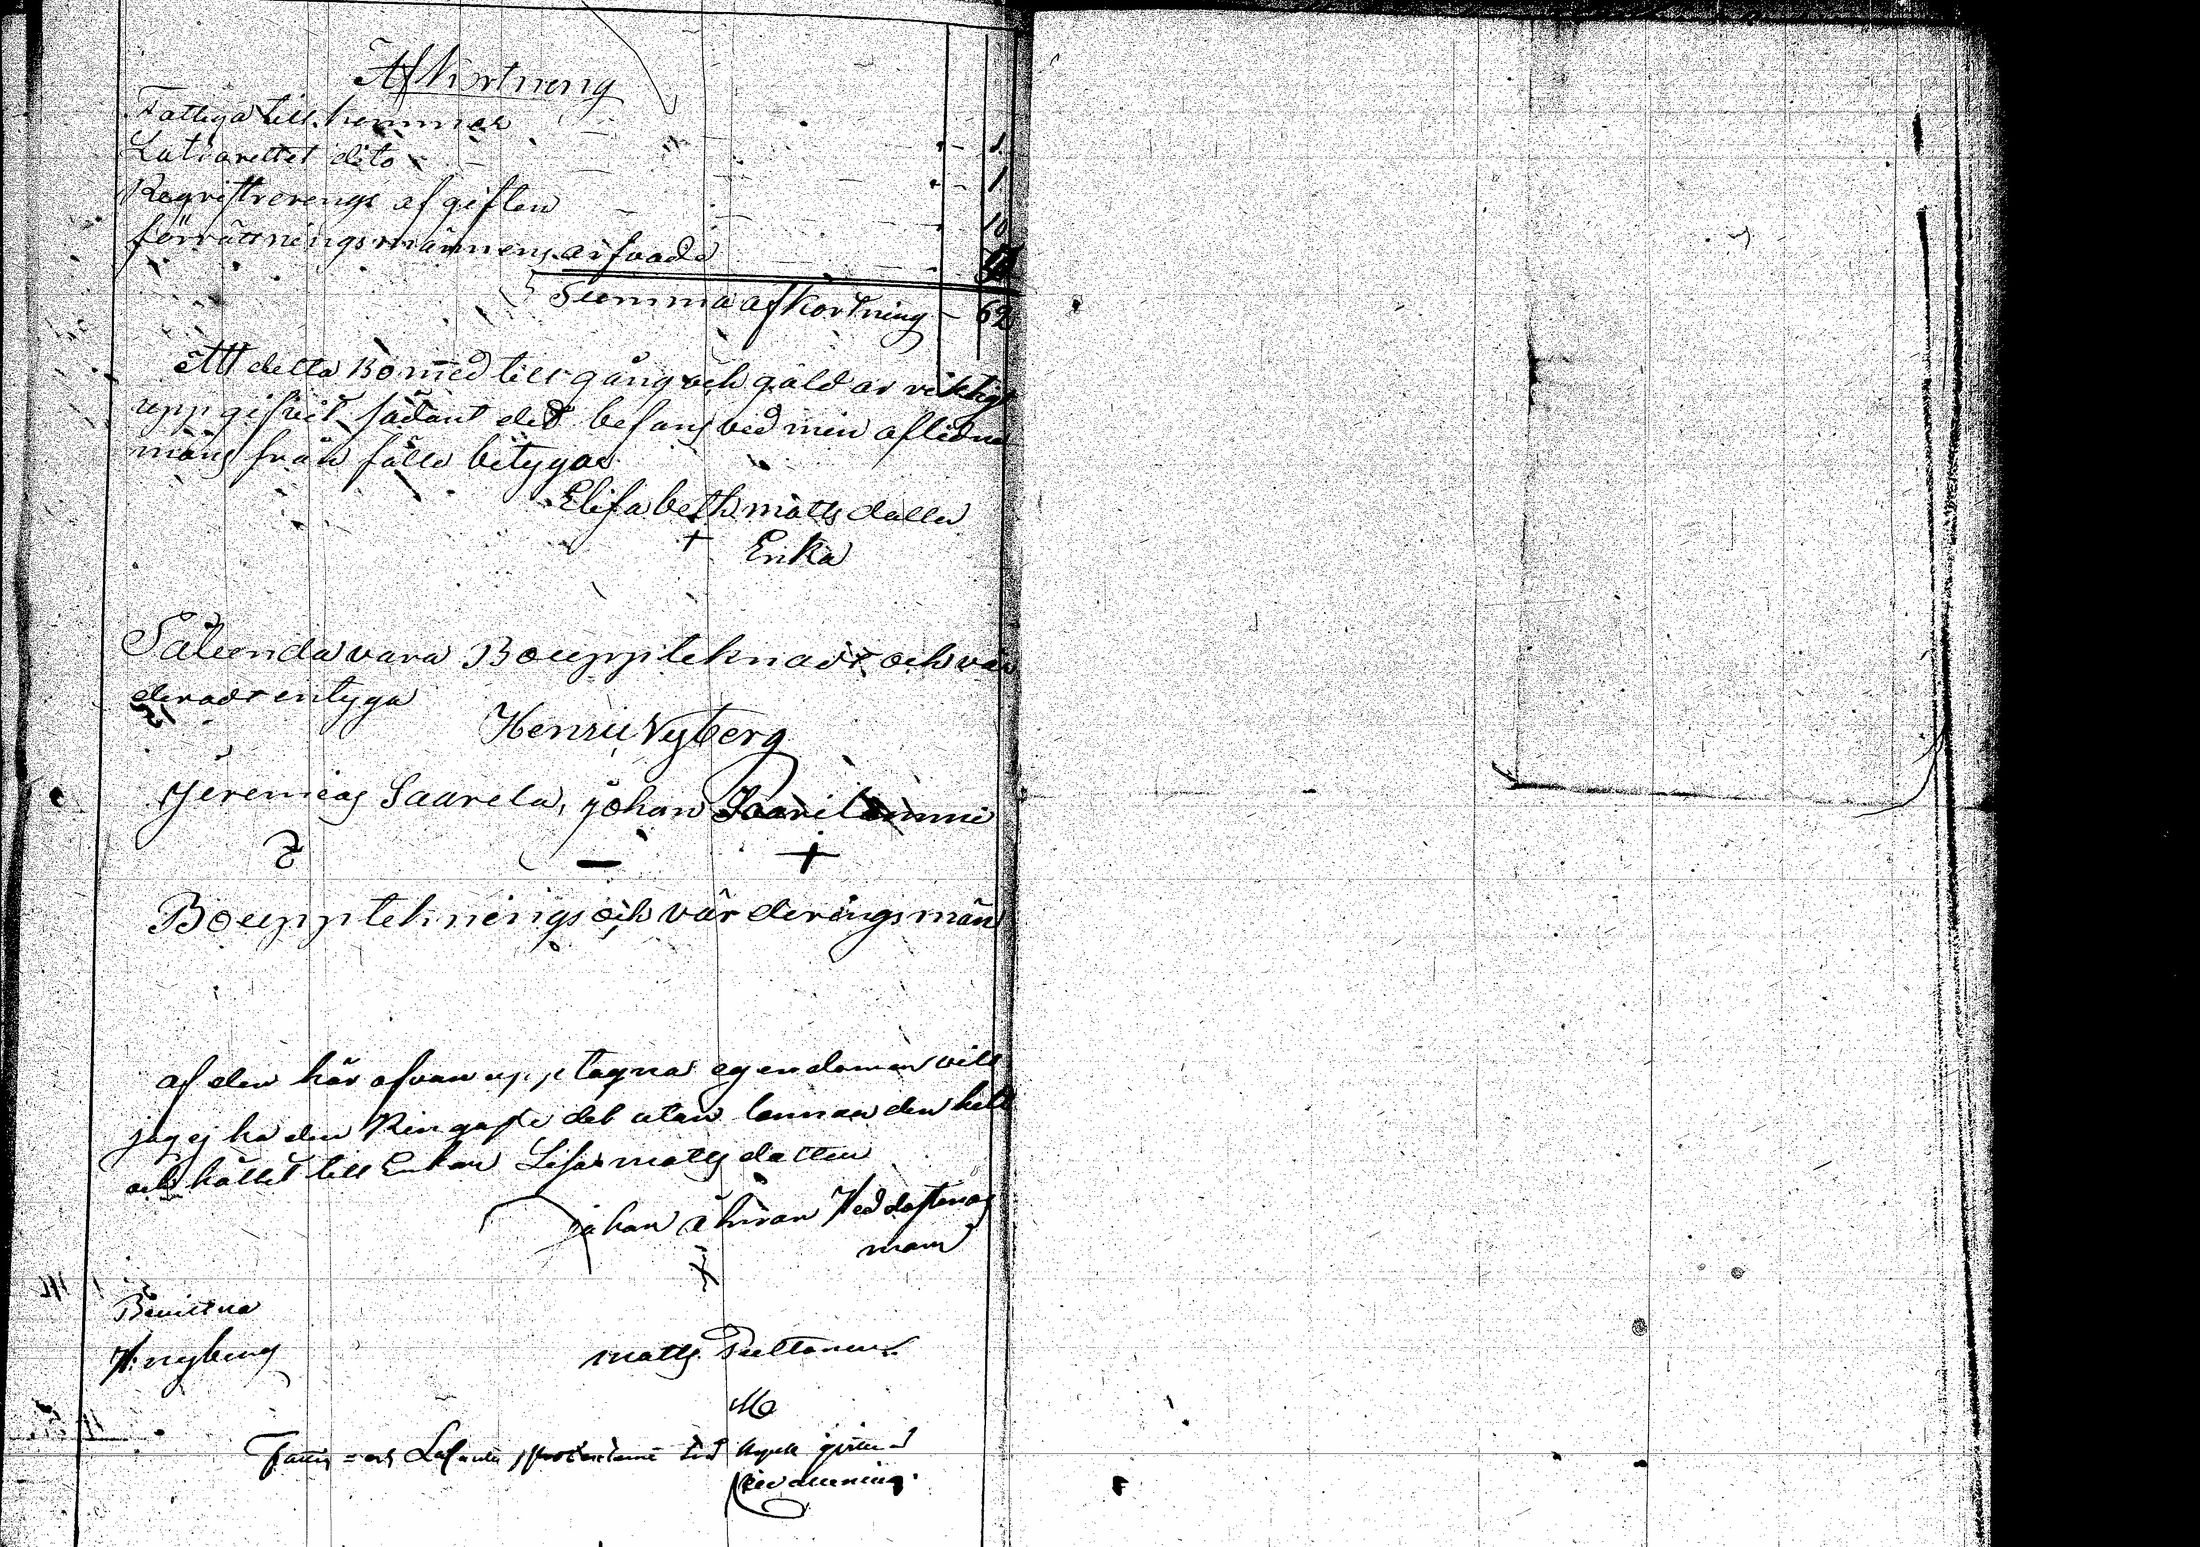 Afkortning
Fattiga till kommer 1.
Latzarettet dito 1
Regristrerings afgiften 10
förrättningsmännens arfvode
Summa afkortning 62
Att detta Bo med till gång och gäld är riktigt
uppgifvit sådant det befans vid min aflidna
mans från fälle bitygar
Elisabeth matts dotter
+ Enka
Sålunda vara Bouppteknadt och vär
deradt intyga
Henric Nyberg
Jeremias Saarela, johan
+
Bouppteknings och värderingsmän
af den här ofvan upptagna egendomen vill
jag ej ha den Ringaste del utan lemnar den helt
och hållet till Enkan Lisa matts dotter
johan Heddastenas
x man
Bevittna
H. nyberg matts Pulttanen
Fattig = och